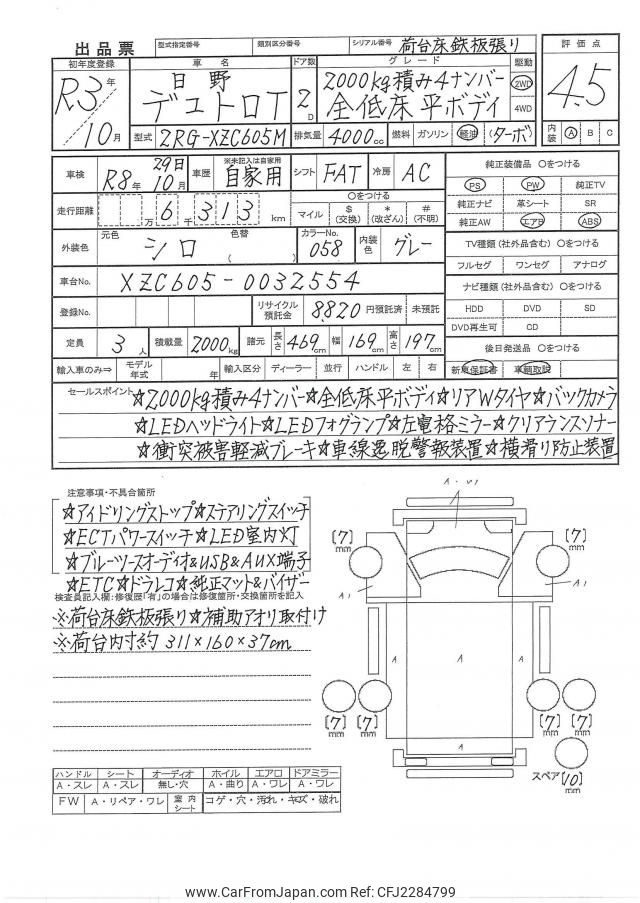 出品票 型式指定番号 類別区分番号 シリアル番号 荷台床鉄板張り
初年度登録 車名 ドア数 グレード 駆動 評価点
R3年 日野 2000kg積み4ナンバー 2WD 4.5
デュトロT 2D 全低床平ボディ 4WD
10月 型式 2RG-XZC605M 排気量 4000cc 燃料 ガソリン 軽油 (ターボ) 内装 A B C
車検 R8年 29日 10月 車歴 ※未記入は自家用 自家用 シフト FAT 冷房 AC 純正装備品 ○をつける
PS PW 純正TV
走行距離 万 6千 313 km ○をつける
マイル $(交換) *(改ざん) #(不明)
純正ナビ 革シート SR
純正AW エアB ABS
外装色 元色 シロ 色替 ( ) カラーNo. 058 内装色 グレー
TV種類 (社外品含む) ○をつける
フルセグ ワンセグ アナログ
車台No. XZC605-0032554
ナビ種類 (社外品含む) ○をつける
登録No. リサイクル預託金 8,820 円預託済 未預託
HDD DVD SD
DVD再生可 CD
定員 3人 積載量 2000kg 諸元 長さ 469cm 幅 169cm 高さ 197cm
後日発送品 ○をつける
輸入車のみ⇒ モデル年式 年 輸入区分 ディーラー 並行 ハンドル 左 右
新車保証書 車輌取説
セールスポイント ☆2000kg積み4ナンバー☆全低床平ボディ☆リアWタイヤ☆バックカメラ
☆LEDヘッドライト☆LEDフォグランプ☆左電格ミラー☆クリアランスソナー
☆衝突被害軽減ブレーキ☆車線逸脱警報装置☆横滑り防止装置
注意事項・不具合箇所
☆アイドリングストップ☆ステアリングスイッチ
☆ECTパワースイッチ☆LED室内灯
☆ブルーツースオーディオ&USB&AUX端子
☆ETC☆ドラレコ☆純正マット&バイザー
検査員記入欄:修復歴「有」の場合は修復箇所・交換箇所を記入
※荷台床鉄板張り☆補助アオリ取付け
※荷台内寸約 311×160×37cm
A・U1
[7]mm [7]mm
A1 A1
A A A
[7]mm [7]mm [7]mm [7]mm
A
スペア [10]mm
ハンドル シート オーディオ ホイル エアロ ドアミラー
A・スレ A・スレ 無し・穴 A・曲り A・ワレ A・ワレ
FW A・リペア・ワレ 室内シート コゲ・穴・汚れ・キズ・破れ
www.CarFromJapan.com Ref: CFJ2284799